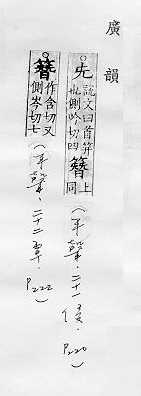 廣韻
兂說文曰首笄也側吟切四簪上同（平聲．二十一侵．P220）
簪作含切又側岑切七（平聲．二十二覃．P222）